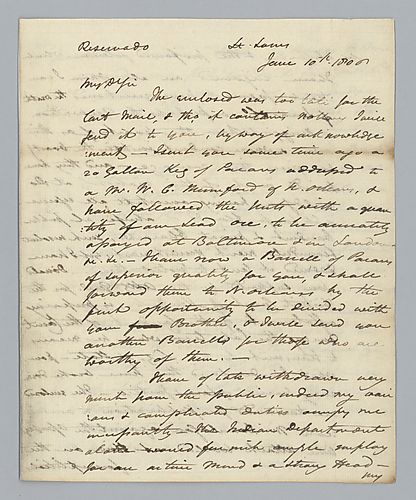 Reservado St. Louis
June 10th. 1806
My D Sir
The enclosed was too late for the
last Mail, & tho, it contains nothing I will
send it to you, by way of acknowledg-
ment — I sent you some time ago a
20 Gallon Keg of Pacans addressed to
a M. W. C. Mumford of N. orleans, &
have followed the Nuts with a quan
tity of our Lead ore, to be accurately
assayed at Baltimore & in London
— I have now a Barrell of Pacans
of superior quality for you, & shall
forward them to N. orleans by the
first opportunity to be divided with
your Brother, & I will send you
another Barrell for those who are
worthy of them. —
I have of late withdrawn very
much from the public, indeed my vari
ous & complicated duties occupy me
incessantly — the Indian Department
alone would furnish ample employ
for an active Mind & a strong Head —
my